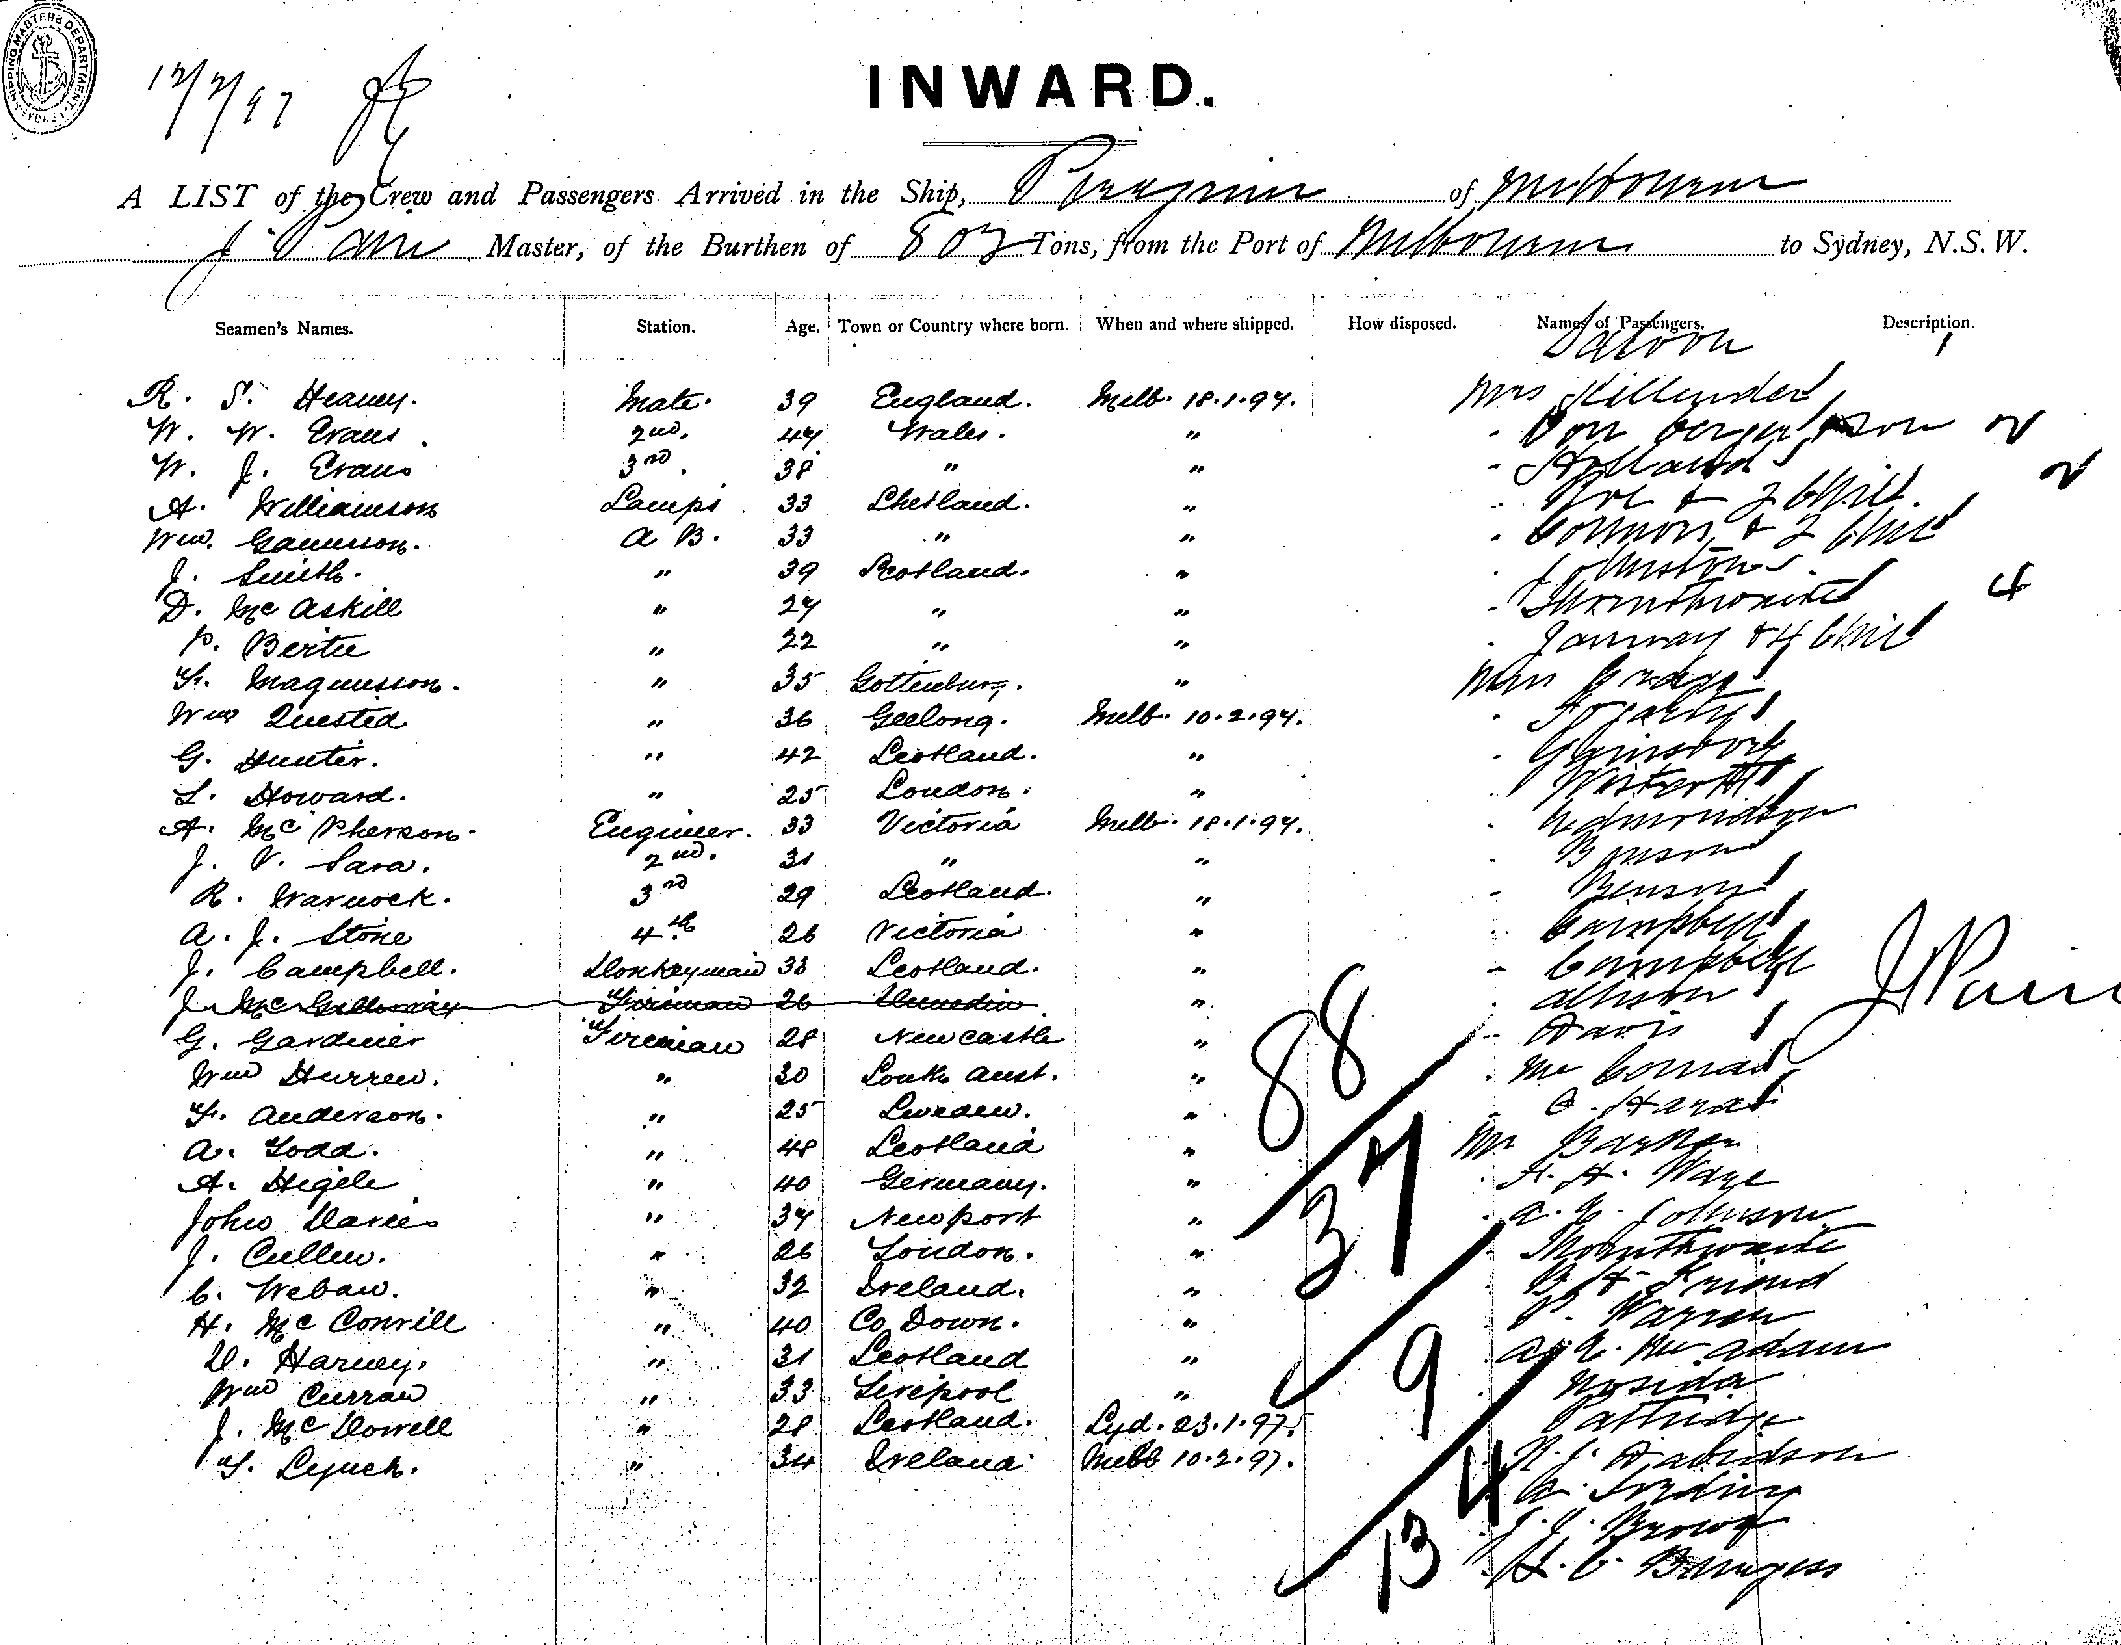 SHIPPING MASTER'S DEPARTMENT SYDNEY
12/2/97
INWARD.
A LIST of the Crew and Passengers Arrived in the Ship, Peregrine of Melbourne
J. Pain Master, of the Burthen of 807 Tons, from the Port of Melbourne to Sydney, N.S.W.
Seamen's Names. Station. Age. Town or Country where born. When and where shipped. How disposed. Names of Passengers. Description.
Saloon
R. S. Heaney. Mate. 39 England. Melb. 18.1.97. Mrs Killender
W. W. Evans. 2nd. 47 Wales. " " Von
W. J. Evans 3rd. 38 " " " Holland
A. Williamson Lamps 33 Shetland. " " & 2 Child.
Wm. Gamerson. A B. 33 " " " Connor & 2 Child
J. Smith. " 39 Scotland. " " Johnstone
D. McAskill " 27 " " " Thornthwaite 4
P. Bertie " 22 " " " Janway & 4 Child
F. Magnusson. " 35 Gottenburg. " Miss
Wm Quested. " 36 Geelong. Melb. 10.2.97. " Fogarty
G. Hunter. " 42 Scotland. " "
L. Howard. " 25 London. " "
A. McPherson. Engineer. 33 Victoria Melb. 18.1.97. " Edmondson
J. V. Sara. 2nd. 31 " " "
R. Warnock. 3rd 29 Scotland. " " Benson
A. J. Stone 4th 26 Victoria " " Campbell
J. Campbell. Donkeyman 38 Scotland. " " Campbell
J. McGilloway Fireman 26 Dunedin " " Allison
G. Gardiner Fireman 28 Newcastle " " Davis
Wm Hurrew. " 30 South Aust. " "
F. Anderson. " 25 Sweden. " " O'Hara
A. Todd. " 48 Scotland " Mr Barker
A. Higele " 40 Germany. " " A. A. Wage
John Davies " 37 Newport " " A. E. Johnson
J. Cullen. " 26 London. " " Thornthwaite
C. Weban. " 32 Ireland. " " B. H. Friend
H. McConvill " 40 Co Down. " " P. Warren
D. Harvey. " 31 Scotland " " McAdam
Wm Curran " 33 Liverpool " "
J. McDowell " 28 Scotland. Syd. 23.1.97. " Pattridge
T. Lynch. " 34 Ireland Melb 10.2.97. " Davidson
J. J. Brown
H. C. Burgess
88
37
9
134
J Pain